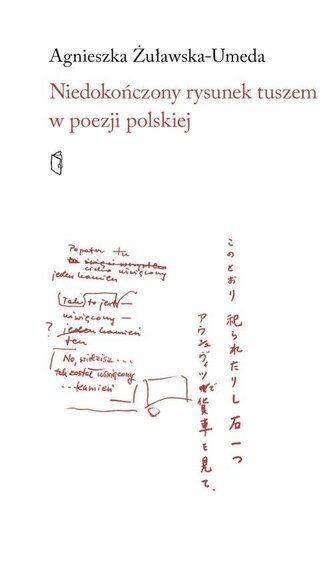 Agnieszka Żuławska-Umeda
Niedokończony rysunek tuszem
w poezji polskiej
Popatrz tu
cicho uświęcony
jeden kamień
Tak to jest
uświęcony
? jeden kamień
ten
No, widzisz...
tak został uświęcony
...kamień
このとおり 祀られたりし 石一つ
アウシュヴィッツで貨車を見て、